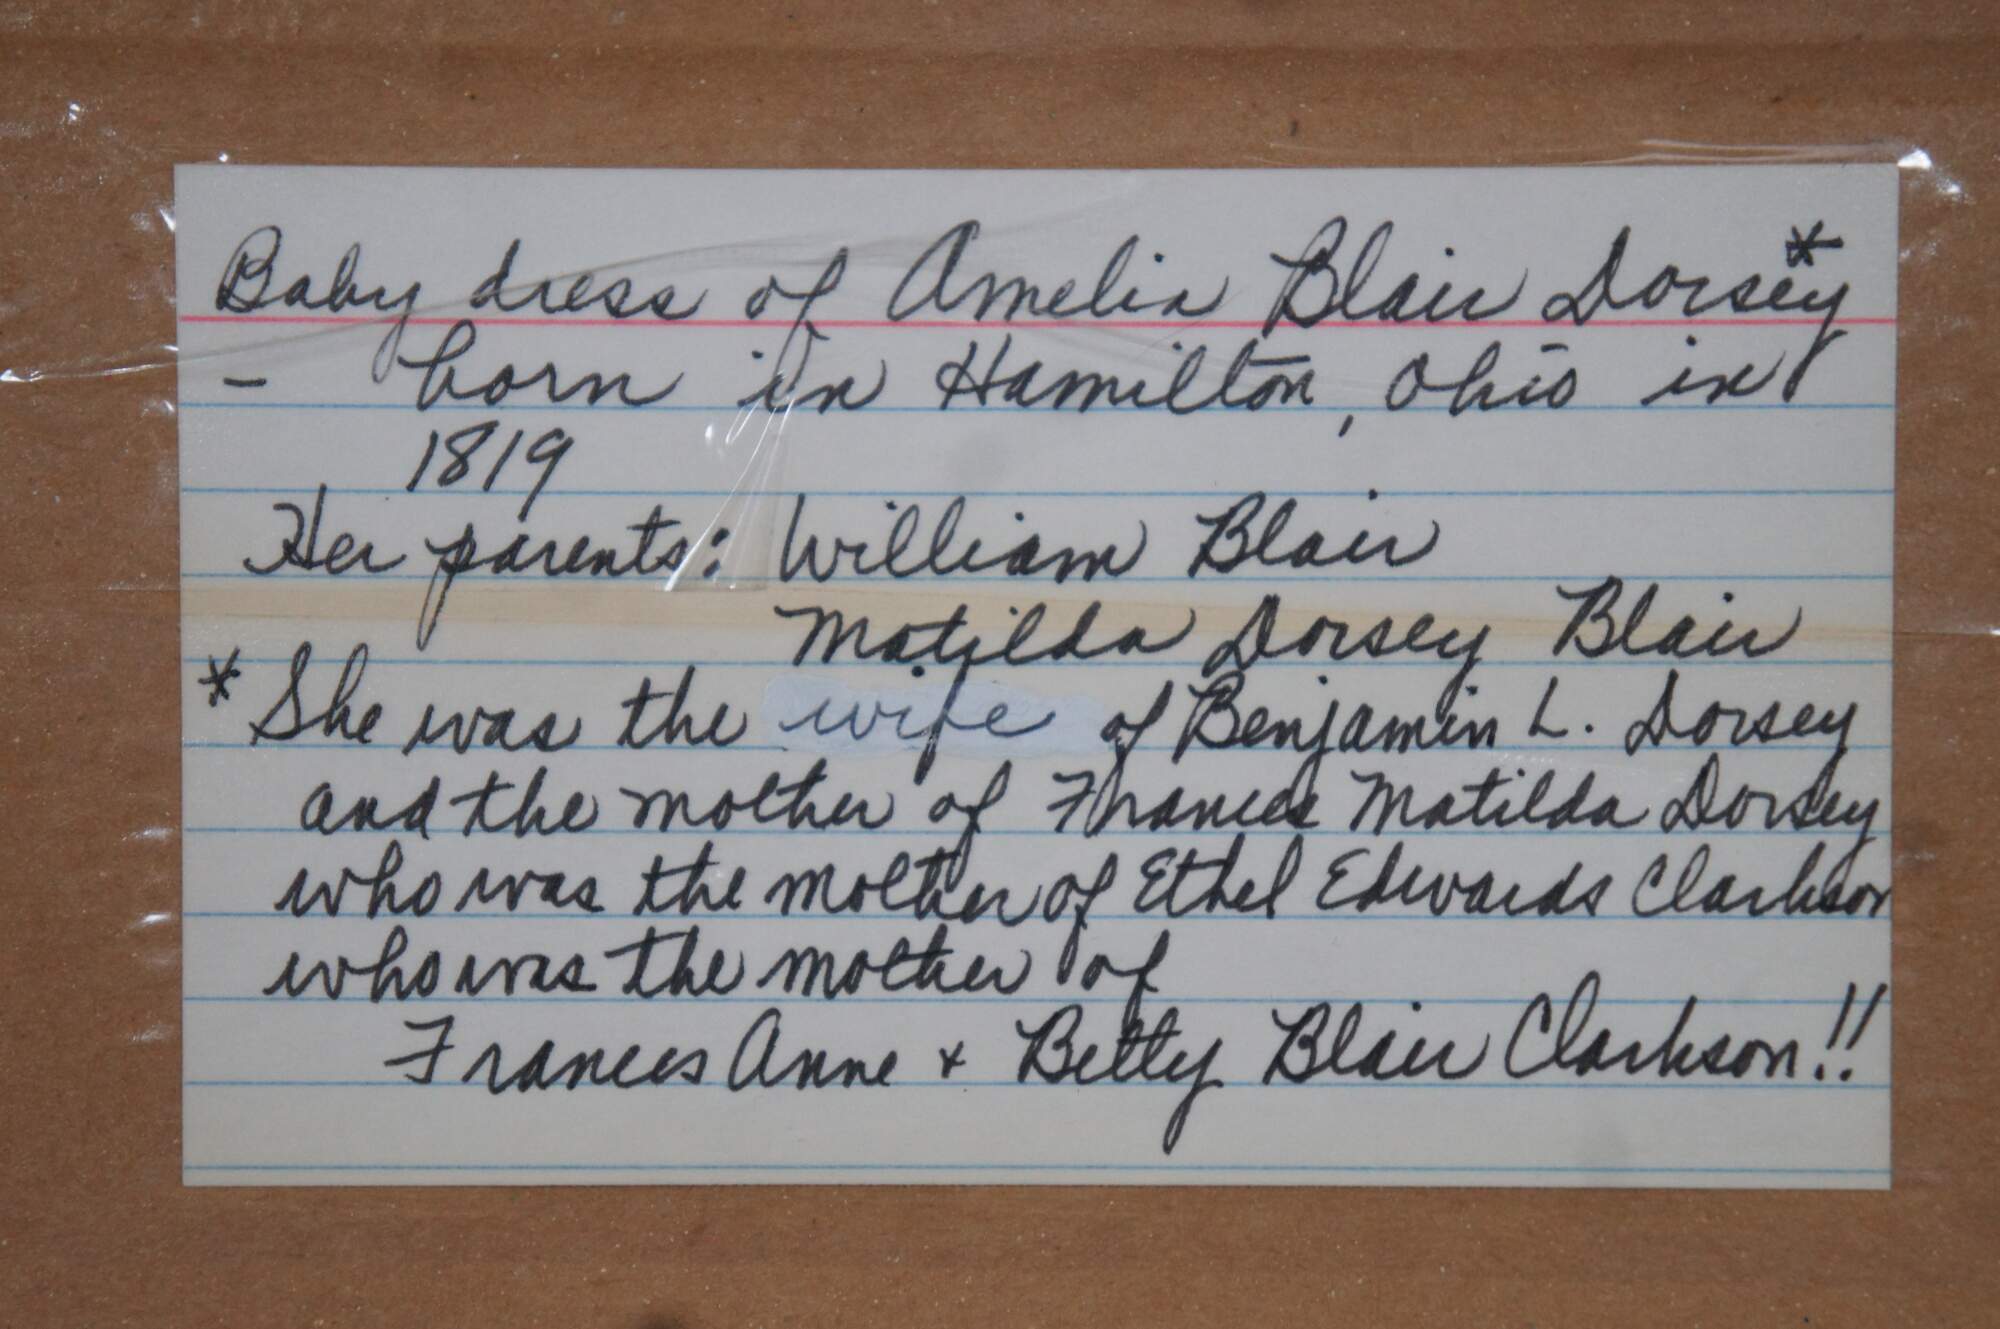 Baby dress of Amelia Blair Dorsey*
- born in Hamilton, Ohio in
1819
Her parents: William Blair
Matilda Dorsey Blair
* She was the wife of Benjamin L. Dorsey
and the mother of Frances Matilda Dorsey
who was the mother of Ethel Edwards Clarkson
who was the mother of
Frances Anne + Betty Blair Clarkson!!